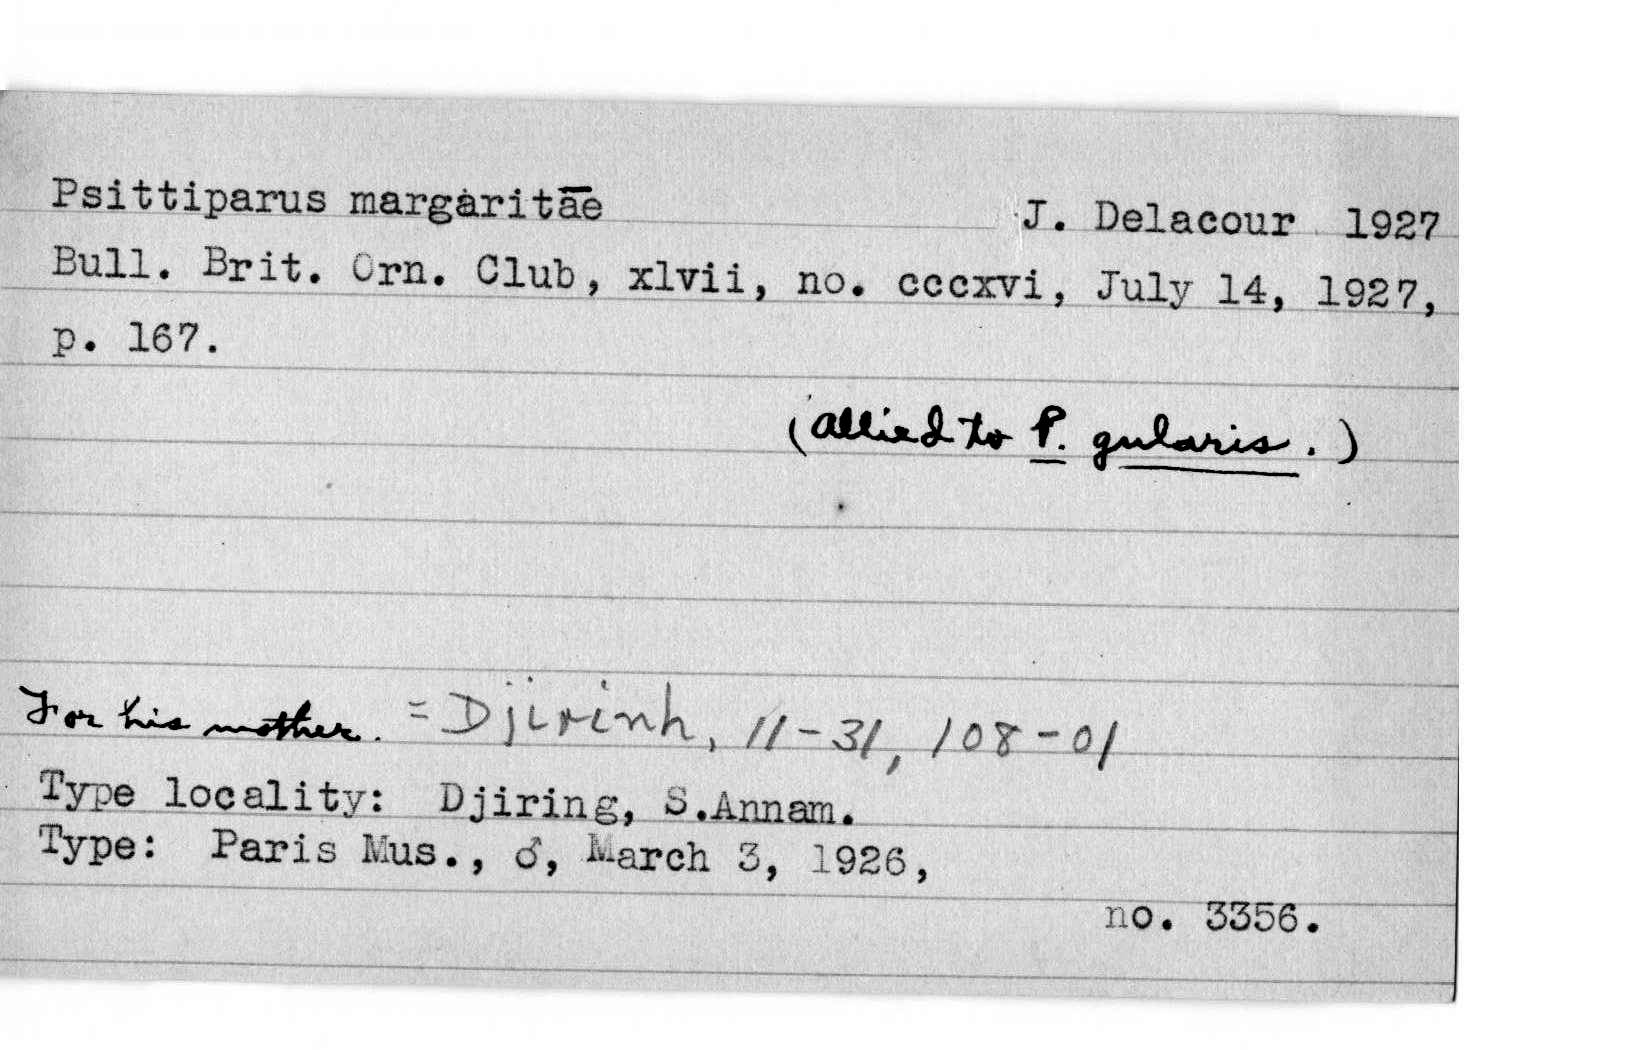 Psittiparus margaritae J. Delacour 1927
Bull. Brit. Orn. Club, xlvii, no. cccxvi, July 14, 1927,
p. 167.
(allied to P. gularis.)
For his mother. = Djirinh, 11-31, 108-01
Type locality: Djiring, S.Annam.
Type: Paris Mus., ♂, March 3, 1926,
no. 3356.